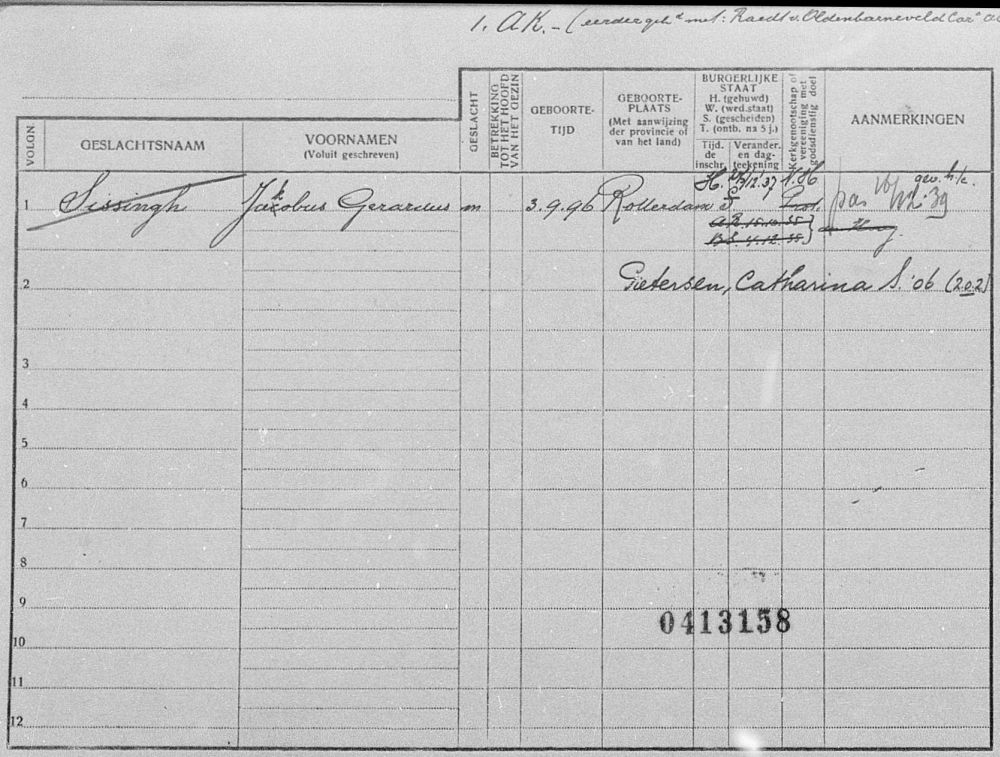 1. A.K. - (eerder geh^d met: Raedt v. Oldenbarneveld Car^a
VOLGN
GESLACHTSNAAM
VOORNAMEN
(Voluit geschreven)
GESLACHT
BETREKKING
TOT HET HOOFD
VAN HET GEZIN
GEBOORTE-
TIJD
GEBOORTE-
PLAATS
(Met aanwijzing
der provincie of
van het land)
BURGERLIJKE
STAAT
H. (gehuwd)
W. (wed.staat)
S. (gescheiden)
T. (ontb. na 5 j.)
Tijd.
de
inschr.
Verander.
en dag-
teekening
Kerkgenootschap of
vereeniging met
godsdienstig doel
AANMERKINGEN
1 Sissingh Jacobus Gerardus m 3.9.96 Rotterdam
H. 12.37 N.H
15.10.35
4.12.35
gev. b/c.
pas
39
2 Pietersen, Catharina S. '06 (202)
3
4
5
6
7
8
9
0413158
10
11
12